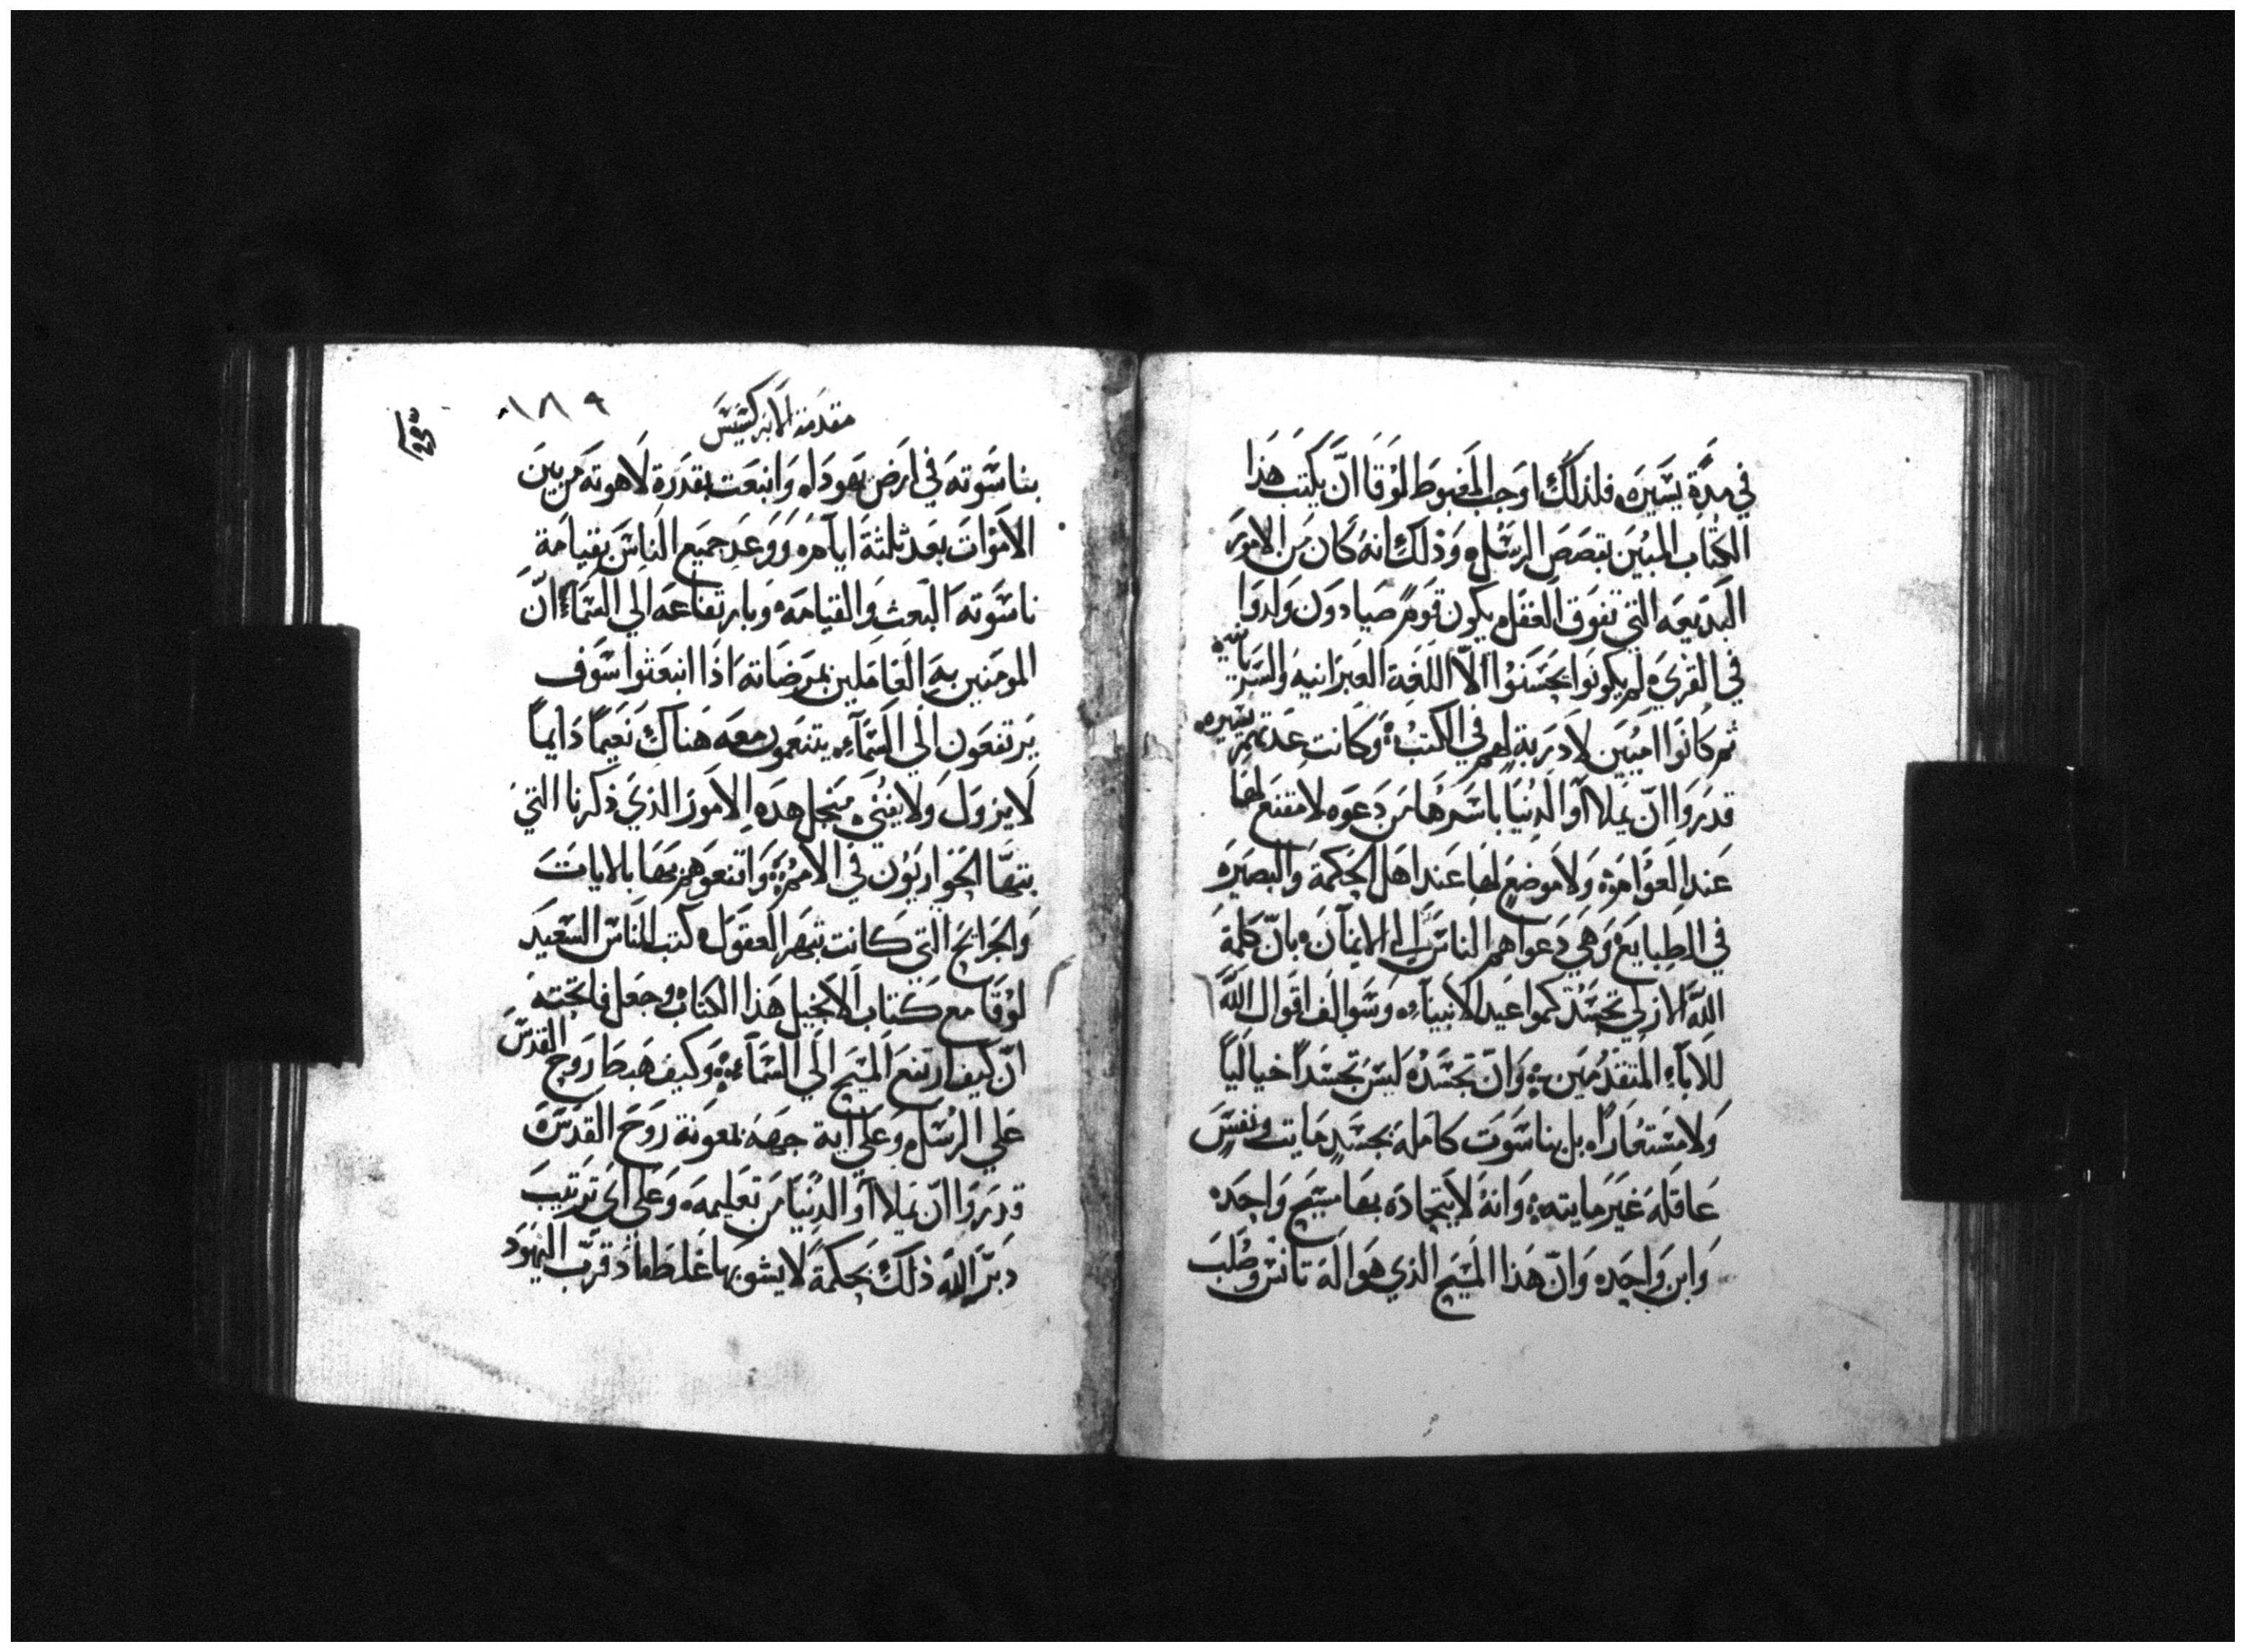 في مدة يسيره فلذلك اوجب المغبوط لوقا ان يكتب هذا
الكتاب المبين بقصص الرسل وذلك انه كان من الامور
البديعه التي تفوق العقل يكون قوم صيادون ولدوا
في القري لم يكونوا يحسنوا الا اللغة العبرانيه والسريانيه
ثم كانوا اميين لا دربة لهم في الكتب وكانت عدتهم يسيره
قدروا ان يملاوا الدنيا باسرها من دعوه لا مقنع لها
عند العوام ولا موضع لها عند اهل الحكمة والبصيره
في الطبايع وهي دعواهم الناس الي الايمان بان كلمة
الله الازلي تجسد كمواعيد الانبياء وسوالف اقوال الله
للاباء المتقدمين وان تجسده ليس تجسدا خياليا
ولا مستعارا بل بناسوت كامله بجسد مايت ونفس
عاقله غير مايته وانه لاتحاده بها مسيح واحده
وابن واحده وان هذا المسيح الذي هو اله تانس وصلب
مقدمة الابركسيس
١٨٩
بناسوته في ارض يهودا وانبعت بقدرة لاهوته من بين
الاموات بعد ثلثة ايام ووعد جميع الناس بقيامة
ناسوته البعث والقيامه وبارتفاعه الي السماء ان
المومنين به العاملين بمرضاته اذا انبعثوا سوف
يرتفعون الي السماء يتنعمون معه هناك نعيما دايما
لا يزول ولا يفني منجل هده الامور الذي ذكرنا التي
بثها الحواريون في الامم واقنعوهم بها بالايات
والجرايح التي كانت تبهر العقول كتب الناس السعيد
لوقا مع كتاب الانجيل هذا الكتاب وجعل فاتحته
ان كيف ارتفع المسيح الي السماء وكيف هبط روح القدس
علي الرسل وعلي اية جهه بمعونة روح القدس
قدروا ان يملاوا الدنيا من تعليمه وعلي اي ترتيب
دبر الله ذلك بحكمة لا يشوبها غلط اذ قرب اليهود